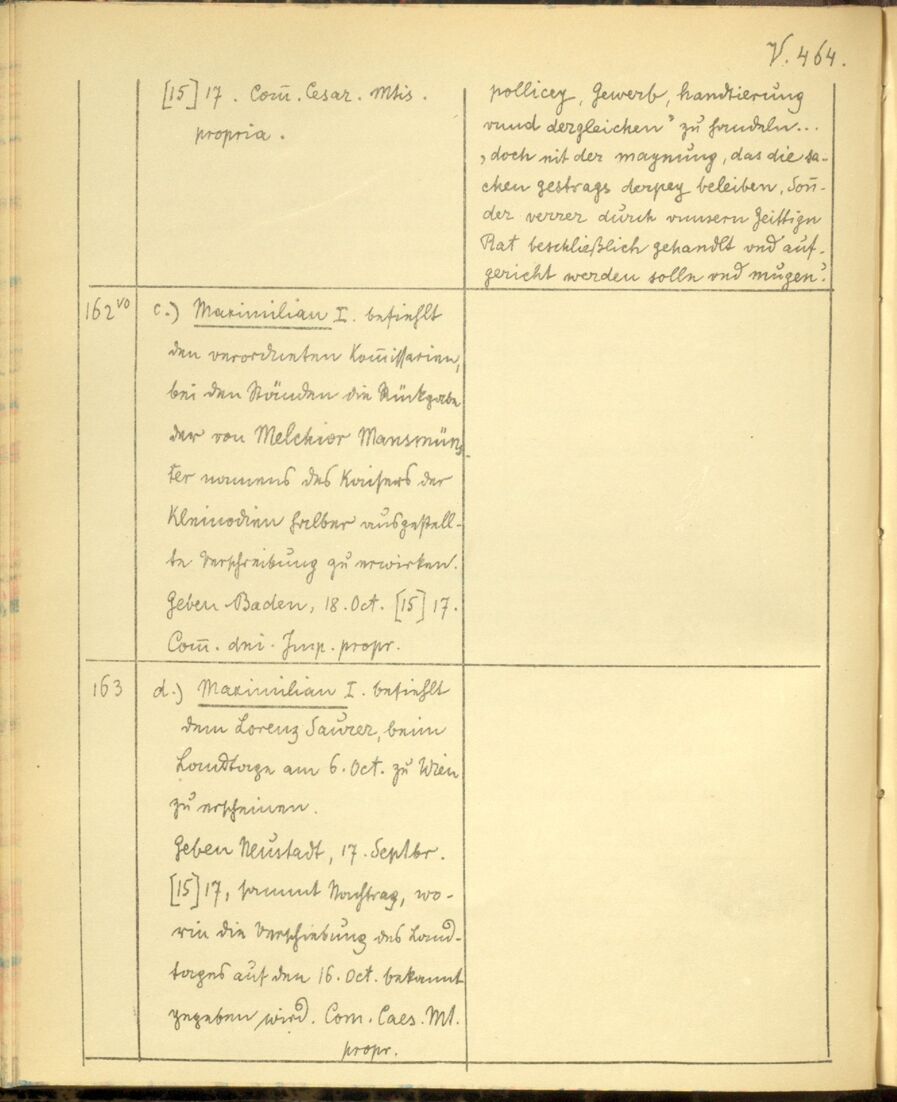 V. 464.
[15] 17. Com̄. Cesar. Mtis.
propria.
pollicey, Gewerb, handtierung
vnnd dergleichen" zu handeln...
"doch nit der maynung, das die sa-
chen gestrags derpey beleiben, Son̄-
der verrer durch vnnsern Zeittign
Rat beschließlich gehandlt vnd auf-
gericht werden solln vnd mugen".
162 vo
c.) Maximilian I. befiehlt
den verordneten Kom̄issarien,
bei den Ständen die Rückgabe
der von Melchior Mansmün-
ster namens des Kaisers der
Kleinodien halber ausgestell-
te Verschreibung zu erwirken.
Geben Baden, 18. Oct. [15] 17.
Com̄. dni. Imp. propr.
163
d.) Maximilian I. befiehlt
dem Lorenz Saurer, beim
Landtage am 6. Oct. zu Wien
zu erscheinen.
Geben Neustadt, 17. Septbr.
[15] 17, sammt Nachtrag, wo-
rin die Verschiebung des Land-
tages auf den 16. Oct. bekannt
gegeben wird. Com. Caes. Mt.
propr.